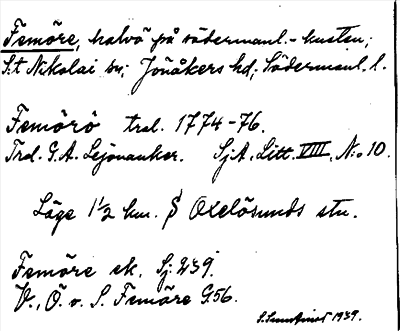 Femöre, halvö på södermanl.-kusten;
S:t Nikolai sn; Jönåkers hd; Södermanl. l.
Femörö tral. 1774-76.
Trol. G. A. Lejonanker. SjA, Litt. VIII, N:o 10.
Läge 1 1/2 km. S Oxelösunds stn.
Femöre ek. Sj: 239.
V., Ö. o. S. Femöre G56.
1939.